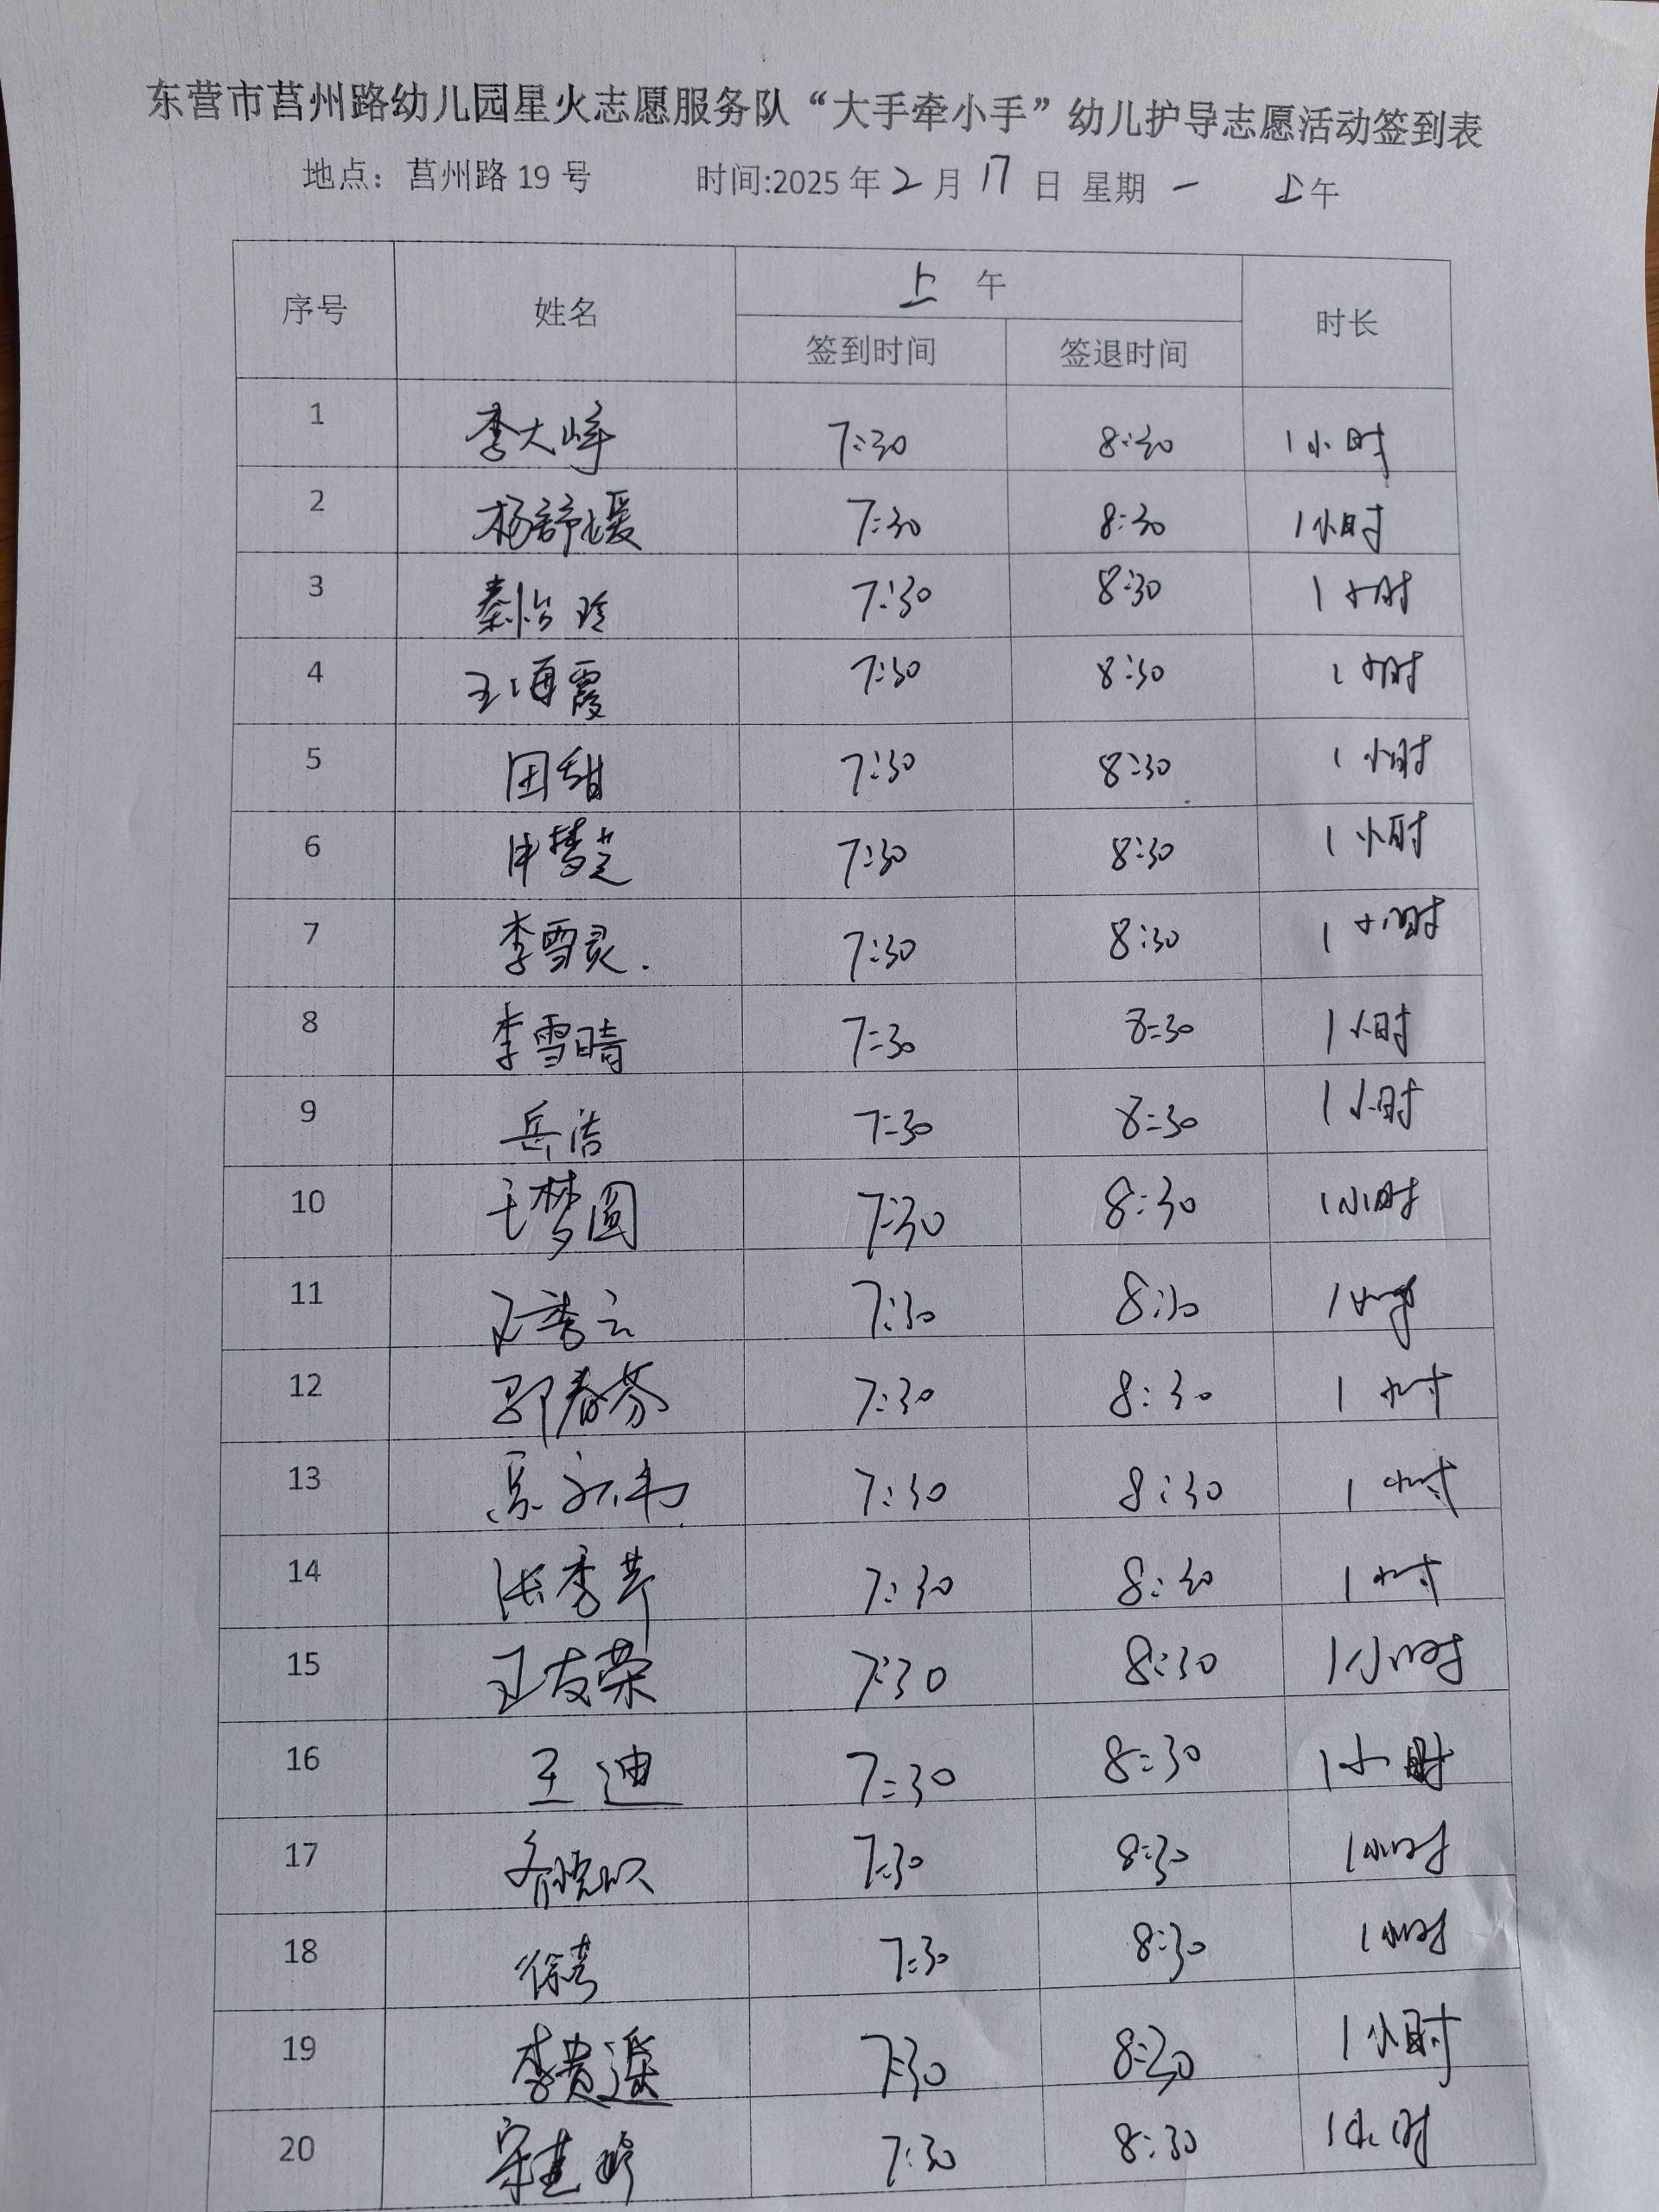 东营市莒州路幼儿园星火志愿服务队“大手牵小手”幼儿护导志愿活动签到表
地点：莒州路 19 号 时间:2025 年 2 月 17 日 星期 一 上午
序号 姓名 上 午 时长
签到时间 签退时间
1 李大峰 7:30 8:30 1小时
2 杨舒媛 7:30 8:30 1小时
3 秦怡玲 7:30 8:30 1小时
4 王海霞 7:30 8:30 1小时
5 田甜 7:30 8:30 1小时
6 申梦芝 7:30 8:30 1小时
7 李雪灵. 7:30 8:30 1小时
8 李雪晴 7:30 8:30 1小时
9 岳洁 7:30 8:30 1小时
10 王梦圆 7:30 8:30 1小时
11 7:30 8:30 1小时
12 郭春芬 7:30 8:30 1小时
13 7:30 8:30 1小时
14 张秀芹 7:30 8:30 1小时
15 王友荣 7:30 8:30 1小时
16 王迪 7:30 8:30 1小时
17 7:30 8:30 1小时
18 7:30 8:30 1小时
19 李贵 7:30 8:30 1小时
20 7:30 8:30 1小时